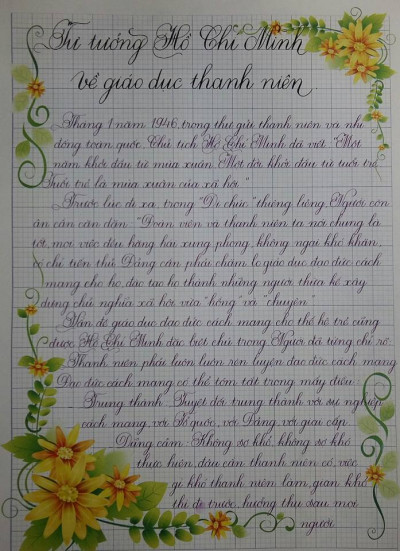 Tư tưởng Hồ Chí Minh
về giáo dục thanh niên
Tháng 1 năm 1946, trong thư gửi thanh niên và nhi
đồng toàn quốc, Chủ tịch Hồ Chí Minh đã viết: "Một
năm khởi đầu từ mùa xuân. Một đời khởi đầu từ tuổi trẻ.
Tuổi trẻ là mùa xuân của xã hội."
Trước lúc đi xa, trong "Di chúc" thiêng liêng, Người còn
ân cần căn dặn: "Đoàn viên và thanh niên ta nói chung là
tốt, mọi việc đều hăng hái xung phong, không ngại khó khăn,
có chí tiến thủ. Đảng cần phải chăm lo giáo dục đạo đức cách
mạng cho họ, đào tạo họ thành những người thừa kế xây
dựng chủ nghĩa xã hội vừa "hồng" và "chuyên".
Vấn đề giáo dục đạo đức cách mạng cho thế hệ trẻ cũng
được Hồ Chí Minh đặc biệt chú trọng. Người đã từng chỉ rõ:
Thanh niên phải luôn luôn rèn luyện đạo đức cách mạng
Đạo đức cách mạng có thể tóm tắt trong mấy điều:
Trung thành: Tuyệt đối trung thành với sự nghiệp
cách mạng, với Tổ quốc, với Đảng, với giai cấp.
Dũng cảm: Không sợ khổ, không sợ khó
thực hiện đâu cần thanh niên có, việc
gì khó thanh niên làm, gian khổ
thì đi trước, hưởng thụ sau mọi
người